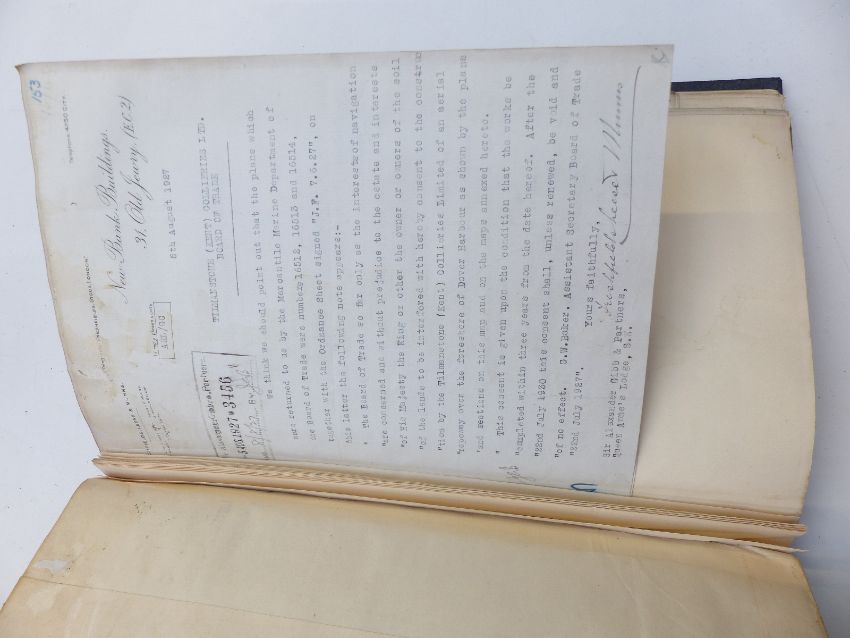 153
New Bank Buildings,
31, Old Jewry, (E.C.2)
5th August 1927
TILMANSTONE (KENT) COLLIERIES LTD.
BOARD OF TRADE
3456
We think we should point out that the plans which
were returned to us by the Mercantile Marine Department of
the Board of Trade were numbers 16512, 16513 and 16514,
together with the Ordnance Sheet signed "J.F. 7.6.27", on
this latter the following note appears:-
" The Board of Trade so far only as the interests of navigation
"are concerned and without prejudice to the estate and interests
"of His Majesty the King or other the owner or owners of the soil
"of the lands to be interfered with hereby consent to the construc
"tion by the Tilmanstone (Kent) Collieries Limited of an aerial
"ropeway over the foreshore of Dover Harbour as shown by the plans
"and sections on this map and on the maps annexed hereto.
" This consent is given upon the condition that the works be
"completed within three years from the date hereof. After the
"22nd July 1930 this consent shall, unless renewed, be void and
"of no effect. G.W.Baker, Assistant Secretary Board of Trade
"22nd July 1927".
Yours faithfully,
Sir Alexander Gibb & Partners,
Queen Anne's Lodge, S.W.